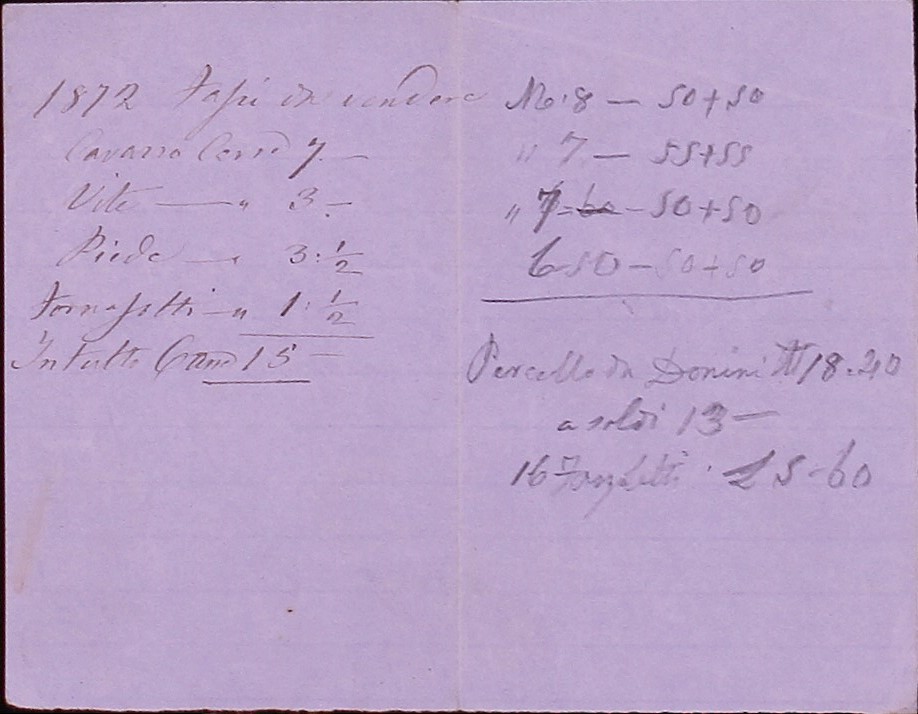 1872 Fassi da vendere
Cavazza Carra 7 –
Vite — " 3 –
Piede — " 3 : 1/2
Fornassetti — " 1 : 1/2
In tutto Carra 15 –
No: 8 — 50 + 50
" 7 — 55 + 55
" 7 – 60 – 50 + 50
650 – 50 + 50
Porcello da Donini 18 - 20
a soldi 13 —
16 L 5 - 60